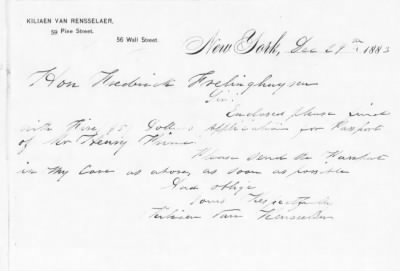 KILIAEN VAN RENSSELAER,
59 Pine Street.
56 Wall Street.
New York, Dec 29th 1883
Hon Frederick Frelinghuysen
Sir:
Enclosed please find
with Five Dollars Application for Passport
of Mr Henry
Please send the Passport
in my Care as above, as soon as possible
And oblige
Yours Respectfully
Kiliaen Van Rensselaer